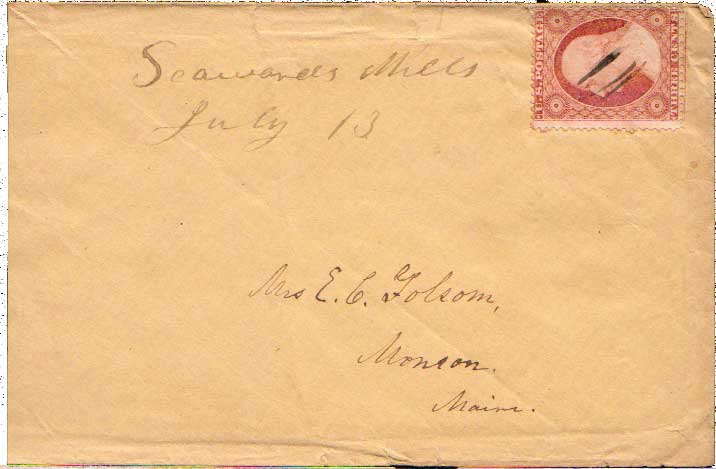 Seawards Mills
July 13
U.S. POSTAGE
THREE CENTS
Mrs E. C. Folsom,
Monson.
Maine.